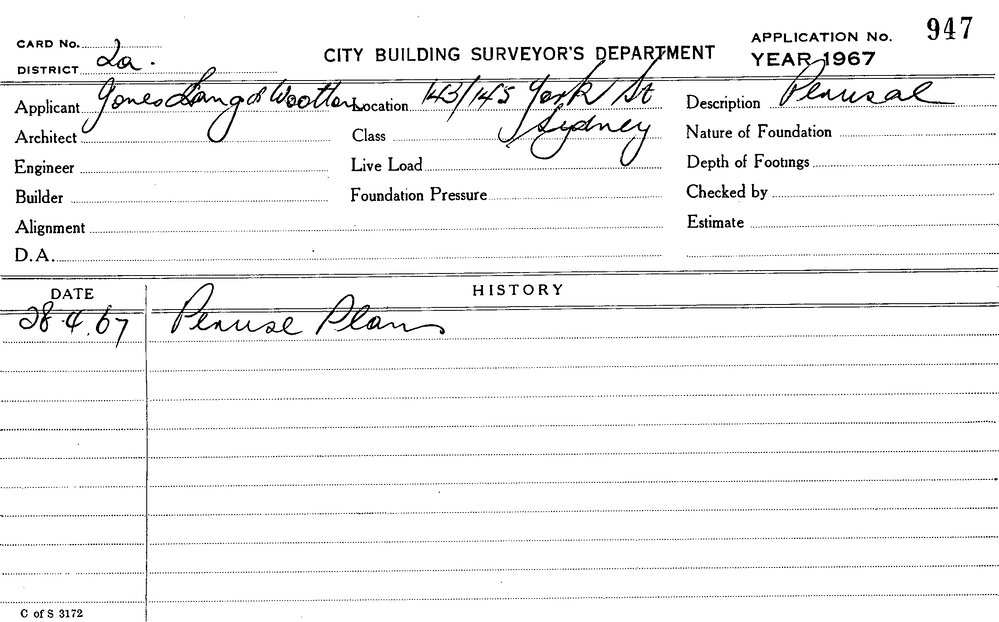 CARD No.
DISTRICT 2a.
CITY BUILDING SURVEYOR'S DEPARTMENT
APPLICATION No. 947
YEAR 1967
Applicant Jones Lang & Wootton Location 143/145 York St Description Perusal
Architect Class Sydney Nature of Foundation
Engineer Live Load Depth of Footings
Builder Foundation Pressure Checked by
Alignment Estimate
D.A.
DATE HISTORY
28.4.67 Peruse Plans
C of S 3172